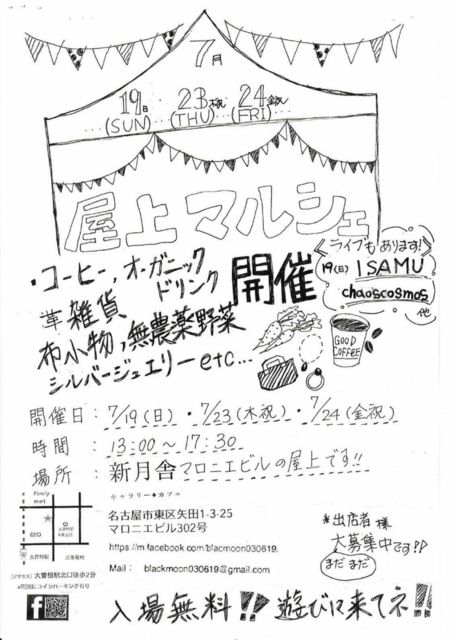 7月
19日 23木祝 24金祝
(SUN) (THU) (FRI)
屋上マルシェ
開催
ライブもあります!
19(日) ISAMU
chaoscosmos
他
・コーヒー, オーガニックドリンク
革雑貨
布小物, 無農薬野菜
シルバージュエリーetc...
GOOD
COFFEE
開催日：7/19(日)・7/23(木祝)・7/24(金祝)
時間：13:00～17:30
場所：新月舎マロニエビルの屋上です!!
ギャラリー◆カフェ
名古屋市東区矢田1-3-25
マロニエビル302号
https://m.facebook.com/blacmoon030619.
Mail： blackmoon030619@gmail.com
Family
mart
GEO
大曽根駅
[アクセス] 大曽根駅北口徒歩2分
*出店者様
大募集中です!?
まだまだ
入場無料!! 遊びに来てネ!!